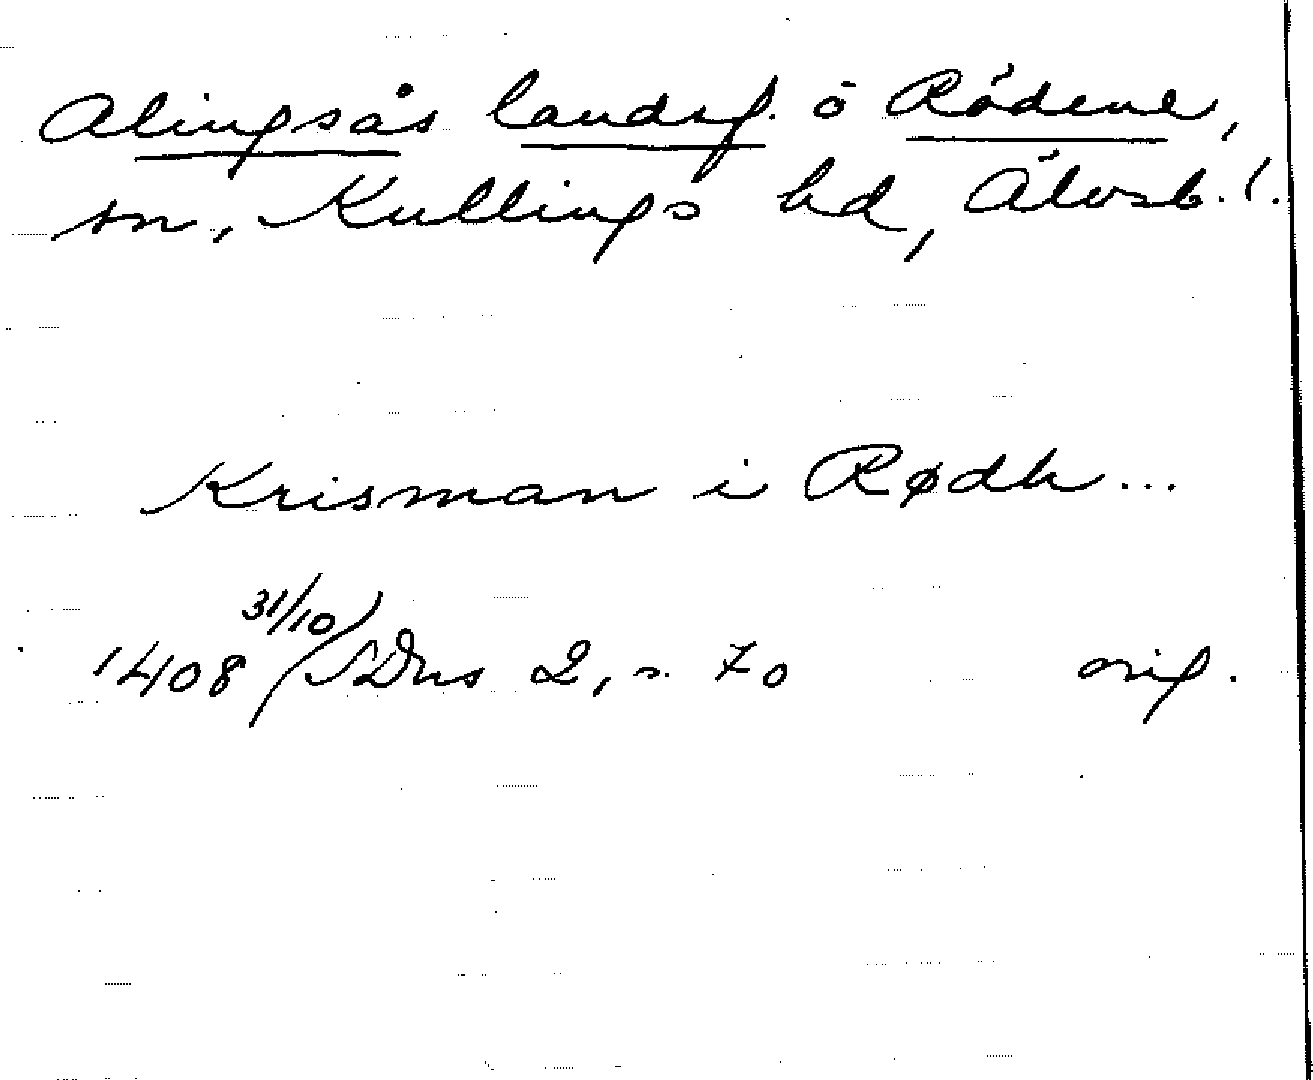 Alingsås landsf. o Rödene,
sn, Kullings hd, Älvsb. l.
Krisman i Rødh...
1408 31/10 SDns 2, s. 70 orig.